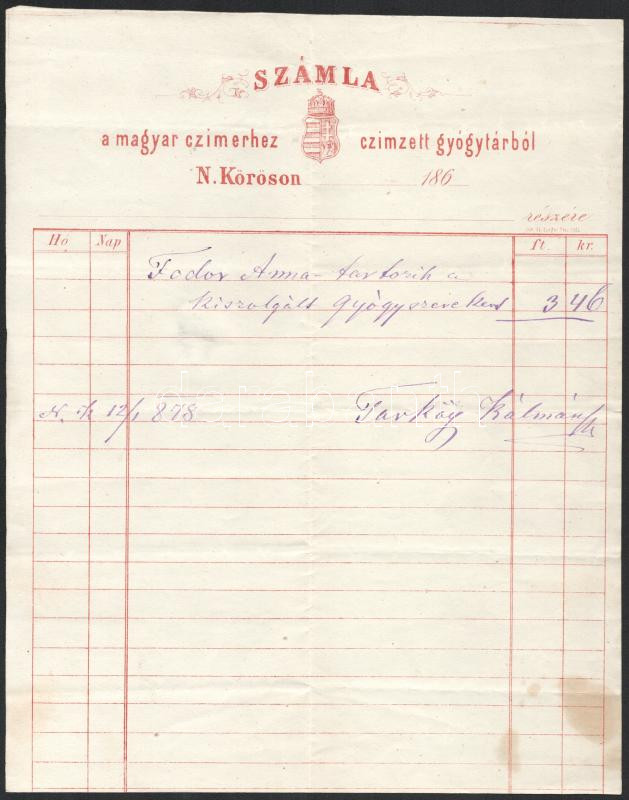 SZÁMLA
a magyar czimerhez czimzett gyógytárból
N. Köröson 186
részére
Hó Nap ft. kr.
Fodor Anna tartozik a
kiszolgált gyógyszerekért 3 46
N. K 12/1 878 Tarkög Kálmán